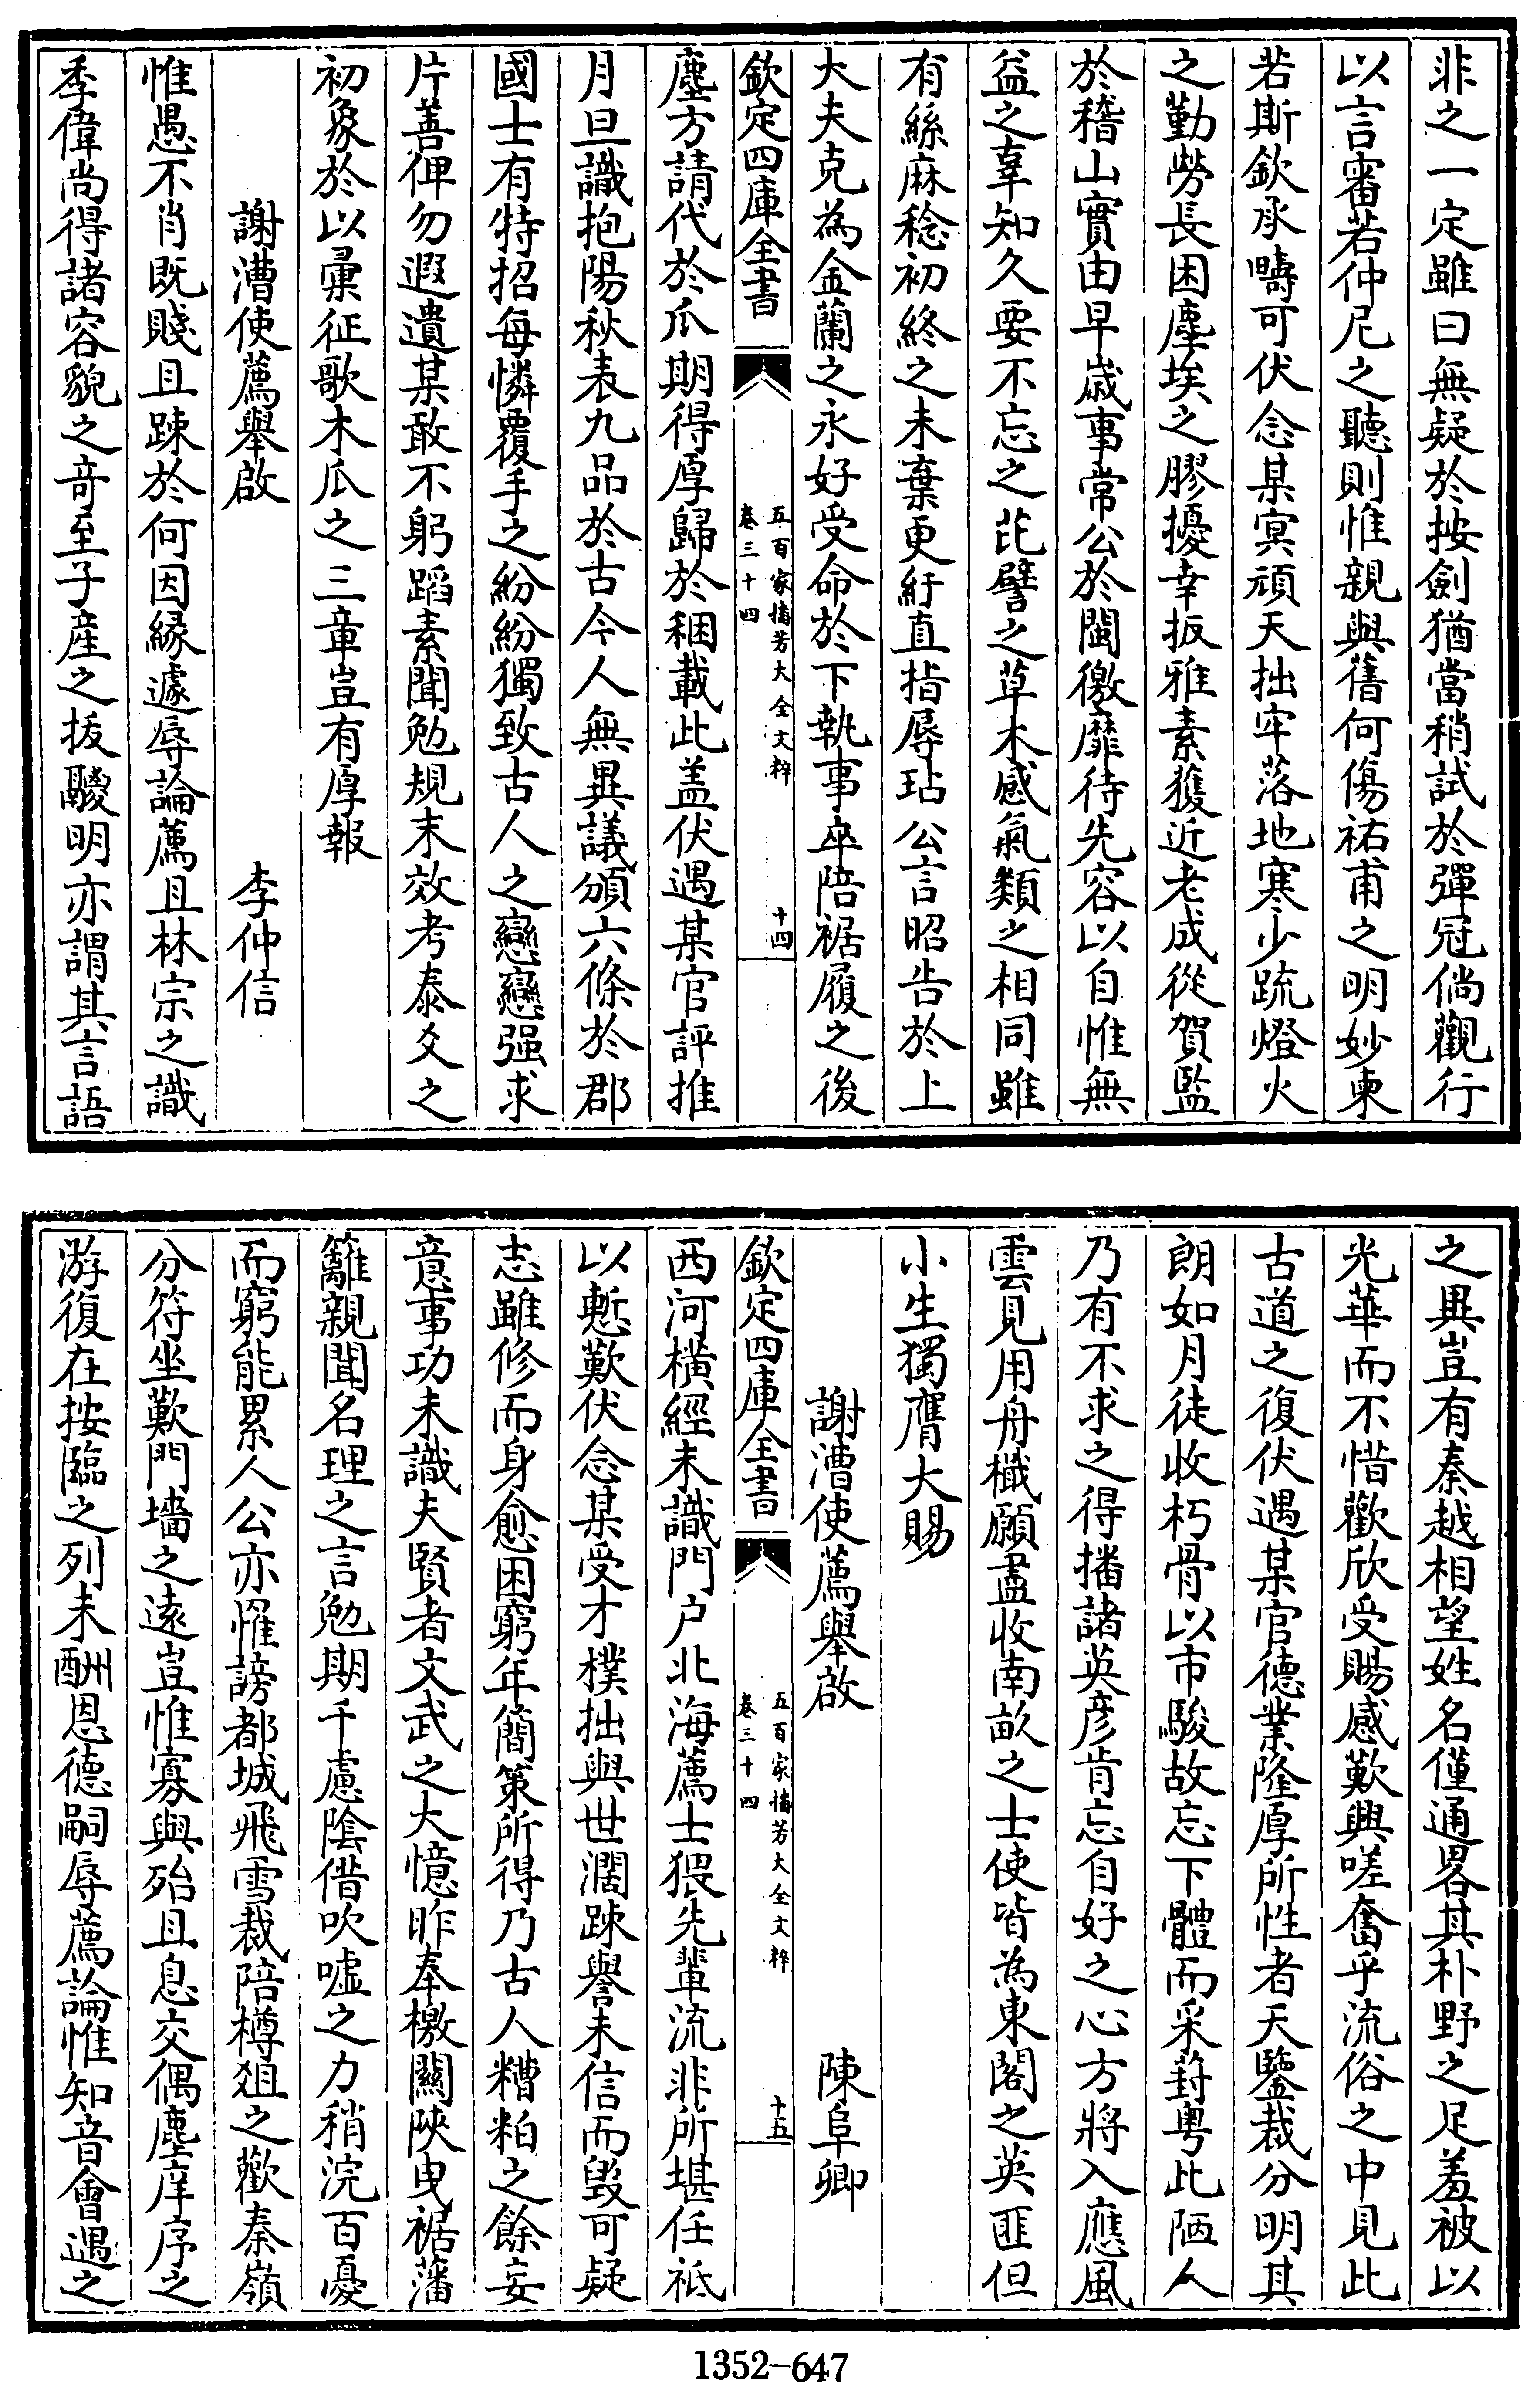 非之一定雖曰無疑於按劍猶當稍試於彈冠倘觀行
以言審若仲尼之聽則惟親與舊何傷祐甫之明妙柬
若斯欽承疇可伏念某冥頑天拙牢落地寒少疏燈火
之勤勞長困塵埃之膠擾幸扳雅素獲近老成從賀監
於稽山實由早歲事常公於閩徼靡待先容以自惟無
益之辜知久要不忘之芘譬之草木感氣類之相同雖
有絲麻稔初終之未棄更紆直指辱玷公言昭告於上
大夫克為金蘭之永好受命於下執事卒陪裾履之後
欽定四庫全書
五百家播芳大全文粹
卷三十四
十四
塵方請代於瓜期得厚歸於稛載此盖伏遇某官評推
月旦識抱陽秋表九品於古今人無異議頒六條於郡
國士有特招每憐覆手之紛紛獨致古人之戀戀强求
片善俾勿遐遺某敢不躬蹈素聞勉規末效考泰爻之
初象於以彙征歌木瓜之三章豈有厚報
謝漕使薦舉啟
李仲信
惟愚不肖既賤且踈於何因緣遽辱論薦且林宗之識
季偉尚得諸容貌之竒至子產之拔鬷明亦謂其言語
之異豈有秦越相望姓名僅通畧其朴野之足羞被以
光華而不惜歡欣受賜感歎興嗟奮乎流俗之中見此
古道之復伏遇某官德業隆厚所性者天鑒裁分明其
朗如月徒收朽骨以市駿故忘下體而采葑粤此陋人
乃有不求之得播諸英彦肯忘自好之心方將入應風
雲見用舟檝願盡收南畝之士使皆為東閣之英匪但
小生獨膺大賜
謝漕使薦舉啟
陳阜卿
欽定四庫全書
五百家播芳大全文粹
卷三十四
十五
西河橫經未識門户北海薦士猥先輩流非所堪任祗
以慙歎伏念某受才樸拙與世濶踈譽未信而毀可疑
志雖修而身愈困窮年簡策所得乃古人糟粕之餘妄
意事功未識夫賢者文武之大憶昨奉檄關陝曳裾藩
籬親聞名理之言勉期千慮陰借吹噓之力稍浣百憂
而窮能累人公亦罹謗都城飛雪裁陪樽爼之歡秦嶺
分符坐歎門墻之遠豈惟寡與殆且息交偶塵庠序之
游復在按臨之列未酬恩德嗣辱薦論惟知音會遇之
1352-647